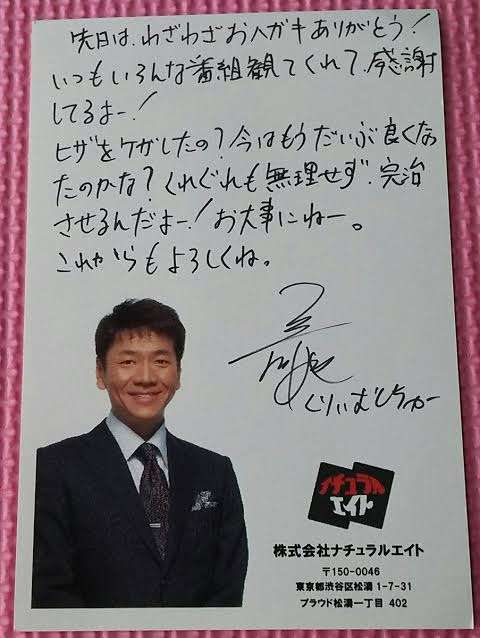 先日は、わざわざおハガキありがとう!
いつもいろんな番組観てくれて、感謝
してるよー!
ヒザをケガしたの?今はもうだいぶ良くなっ
たのかな?くれぐれも無理せず、完治
させるんだよー!お大事にねー。
これからもよろしくね。
くりぃむしちゅー
ナチュラル
エイト
株式会社ナチュラルエイト
〒150-0046
東京都渋谷区松濤1-7-31
プラウド松濤一丁目 402